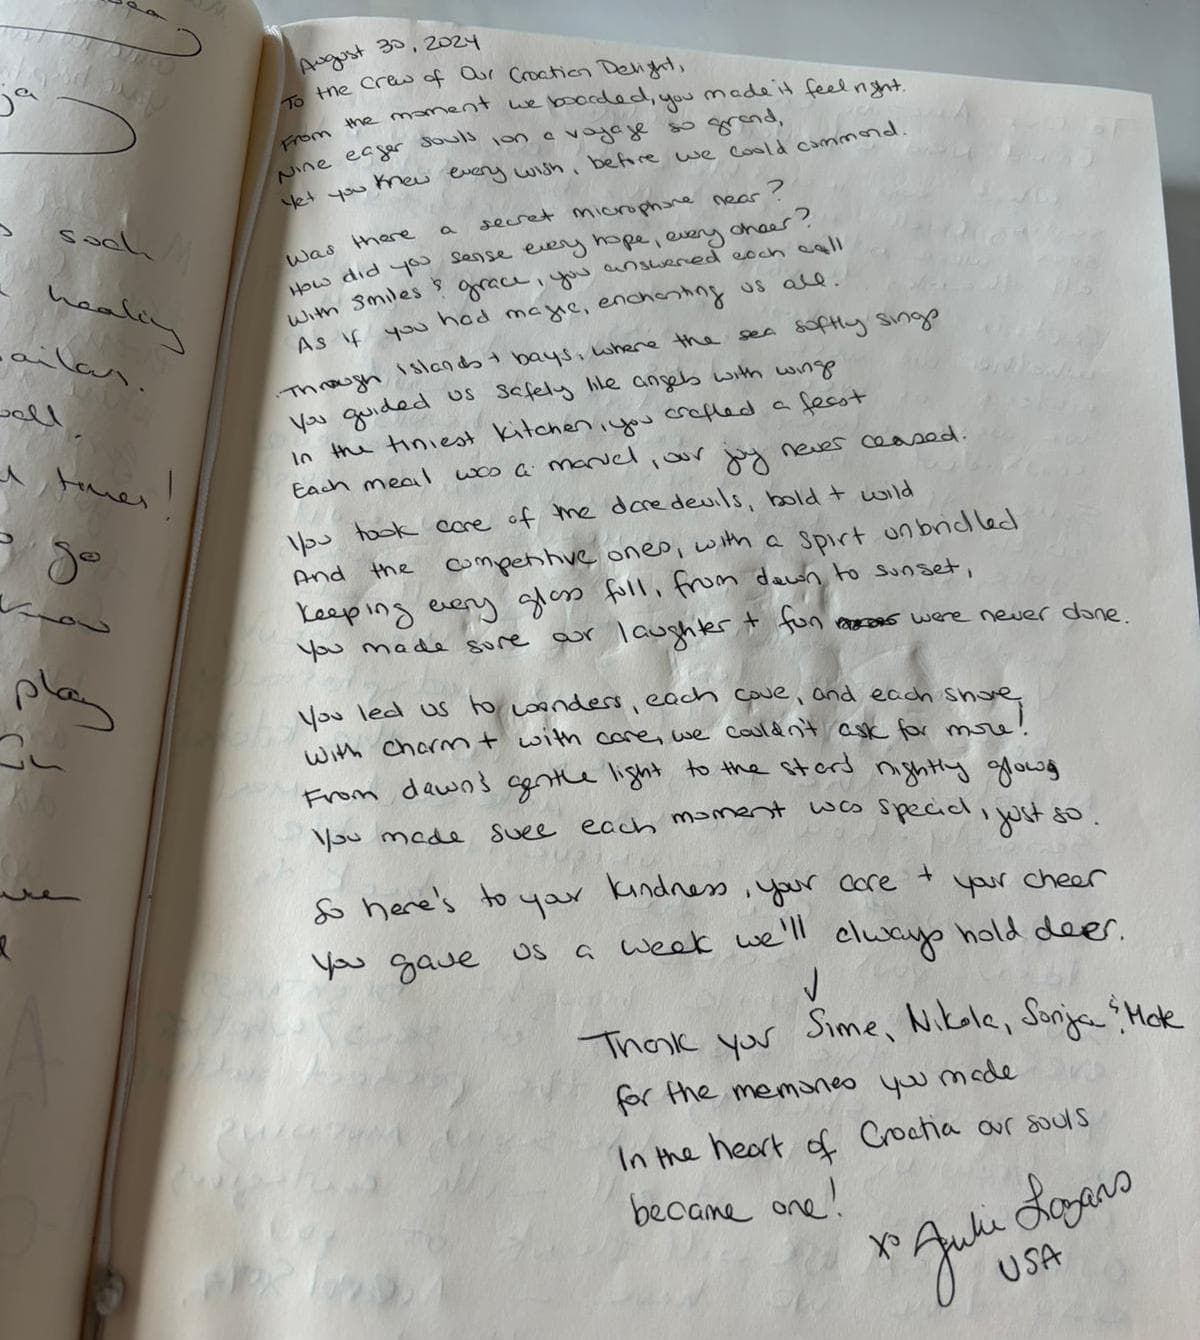 August 30, 2024
To the Crew of Our Croatian Delight,
From the moment we boarded, you made it feel right.
Nine eager souls, on a voyage so grand,
Yet you knew every wish, before we could command.
Was there a secret microphone near?
How did you sense every hope, every cheer?
With smiles & grace, you answered each call
As if you had magic, enchanting us all.
Through islands + bays, where the sea softly sings
You guided us safely like angels with wings
In the tiniest kitchen, you crafted a feast
Each meal was a marvel, our joy never ceased.
You took care of the daredevils, bold + wild
And the competitive ones, with a spirt unbridled
Keeping every glass full, from dawn to sunset,
You made sure our laughter + fun were never done.
You led us to wonders, each cove, and each shore,
With charm + with care, we couldn't ask for more!
From dawn's gentle light to the stars nightly glows
You made suee each moment was special, just so.
So here's to your kindness, your care + your cheer
You gave us a week we'll always hold deer.
Thank you Sime, Nikola, Sonja & Mate
for the memories you made
In the heart of Croatia our souls
became one!
xo Julie Lozano
USA
such
healing
sailors.
times!
go
know
play